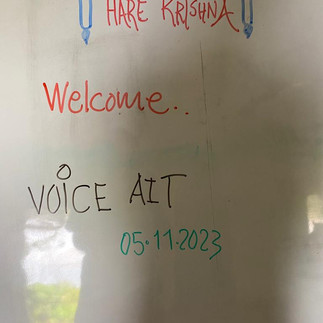 HARE KRISHNA
Welcome..
VOICE AIT
05.11.2023